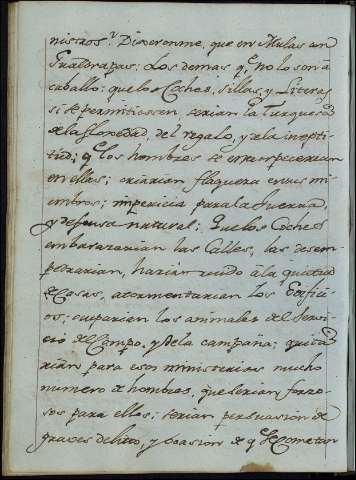 nistros: Dixeronme, que en Mulas con
Gualdrapas: Los demas qᵉ no lo son à
caballo: que los Coches, sillas, y Literas
si se permitiessen serian la
de la flojedad, del regalo, y de la inepti
tud; qᵉ los hombres se entorpecerian
en ellas; criarian flaqueza en sus mi
embros; impericia para la Guerra,
y defensa natural: Que los Coches
embarazarian las Calles, las desem
pedrarian, harian ruido a la quietud
de Casas, atormentarian los Edifici
os; ocuparian los animales del servi
cio del Campo, y de la campaña; quita
rian para esos ministerios mucho
numero de hombres, que serian forzo
sos para ellos; serian persuasion de
graves delitos, y ocasion de qᵉ se cometan